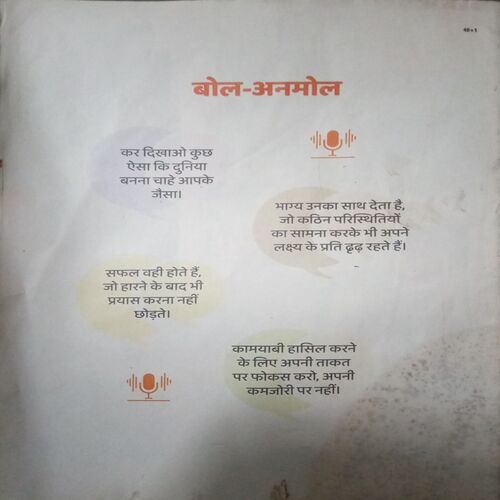 48+1
बोल-अनमोल
कर दिखाओ कुछ
ऐसा कि दुनिया
बनना चाहे आपके
जैसा।
भाग्य उनका साथ देता है,
जो कठिन परिस्थितियों
का सामना करके भी अपने
लक्ष्य के प्रति दृढ़ रहते हैं।
सफल वही होते हैं,
जो हारने के बाद भी
प्रयास करना नहीं
छोड़ते।
कामयाबी हासिल करने
के लिए अपनी ताकत
पर फोकस करो, अपनी
कमजोरी पर नहीं।